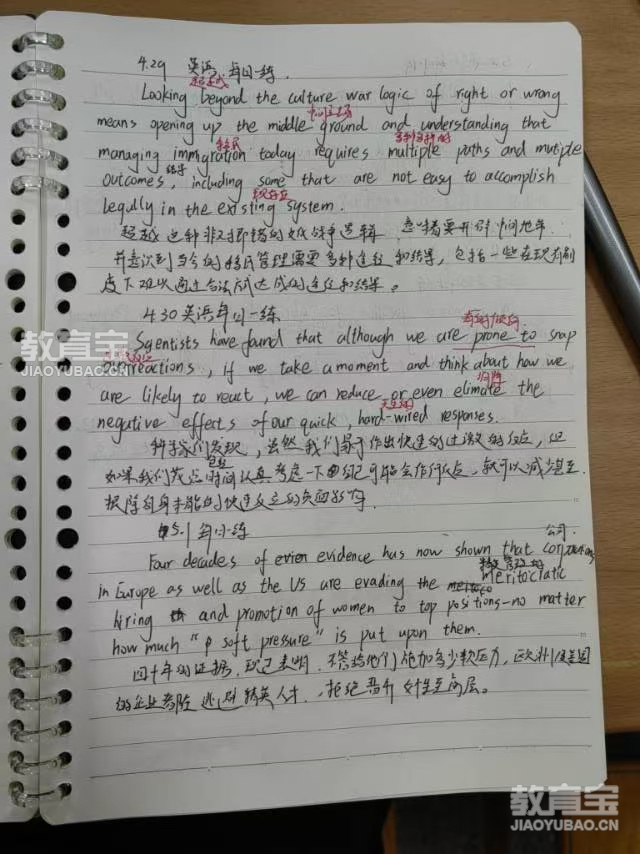 4.29 英语每日一练.
超越
Looking beyond the culture war logic of right or wrong
中间立场
means opening up the middle ground and understanding that
移民
managing immigration today requires multiple paths and mutiple
结果
outcomes, including some that are not easy to accomplish
legully in the existing system.
超越这种非对即错的文战争逻辑, 意味着要开辟中间地带
并意识到当今的移民管理需要多种途径和结果, 包括一些在现有制
度下难以通过合法方式达成的途径和结果。
4.30 英语每日一练
Sqentists have found that although we are prone to snap
reactions, if we take a moment and think about how we
消除
are likely to react, we can reduce or even elimate the
negutive effects of our quick, hard-wired responses.
科学家们发现, 虽然我们易于作出快速的过激的反应, 但
如果我们花点时间认真考虑一下自己可能会作何反应, 就可以减少甚至
根除自身本能的快速反应的负面影响.
5.1 每日一练
公司.
Four decades of evidence has now shown that corporations
in Europe as well as the US are evading the meritoclatic
hiring and promotion of women to top positions-no matter
how much "soft pressure" is put upon them.
四十年的证据, 现已表明, 不管给他们施加多少软压力, 欧洲及美国
的企业都在逃避精英人才, 拒绝晋升女性至高层。
教育宝
JIAOYUBAO.CN
教育宝
JIAOYUBAO.CN